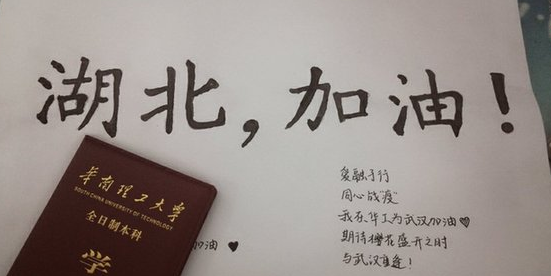 湖北，加油！
华南理工大学
SOUTH CHINA UNIVERSITY OF TECHNOLOGY
全日制本科
学
加油 ♥
爱融于行
同心战"疫"
我在华工为武汉加油♥
期待樱花盛开之时
与武汉重逢！